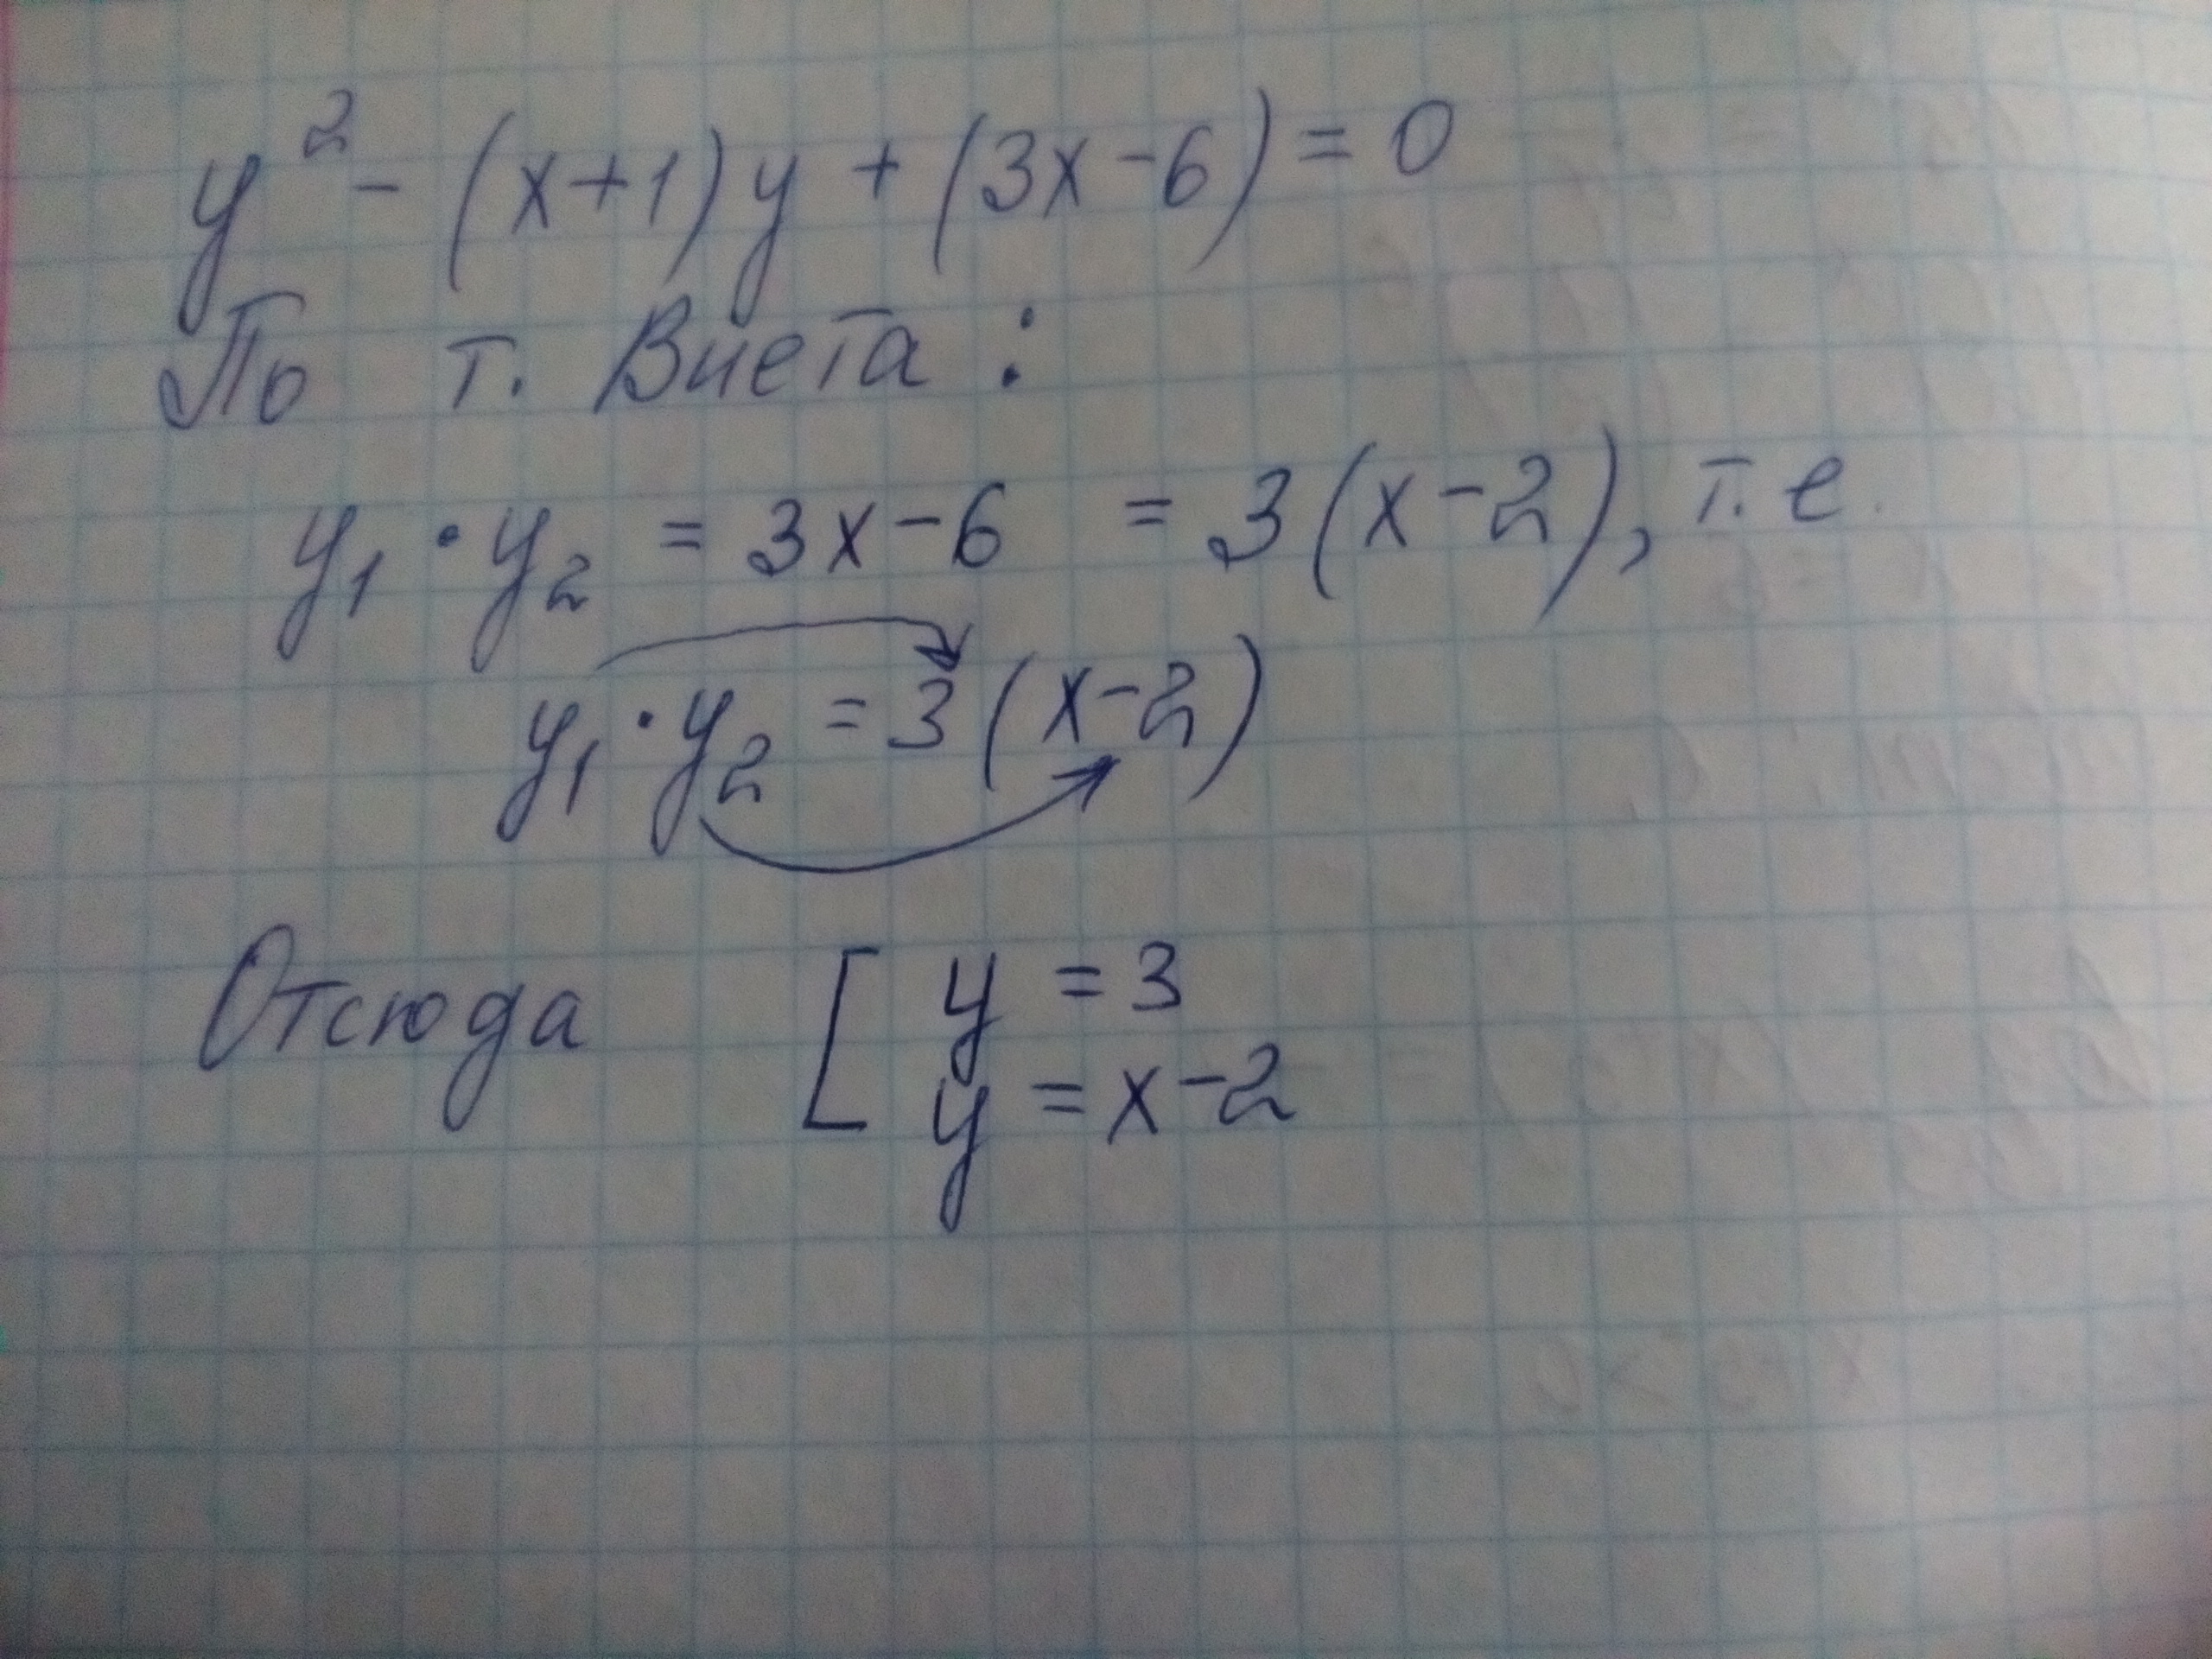 y² - (x+1)y + (3x-6) = 0
По т. Виета:
y₁ · y₂ = 3x-6 = 3(x-2), т.е.
y₁ · y₂ = 3(x-2)
Отсюда [ y = 3
y = x-2